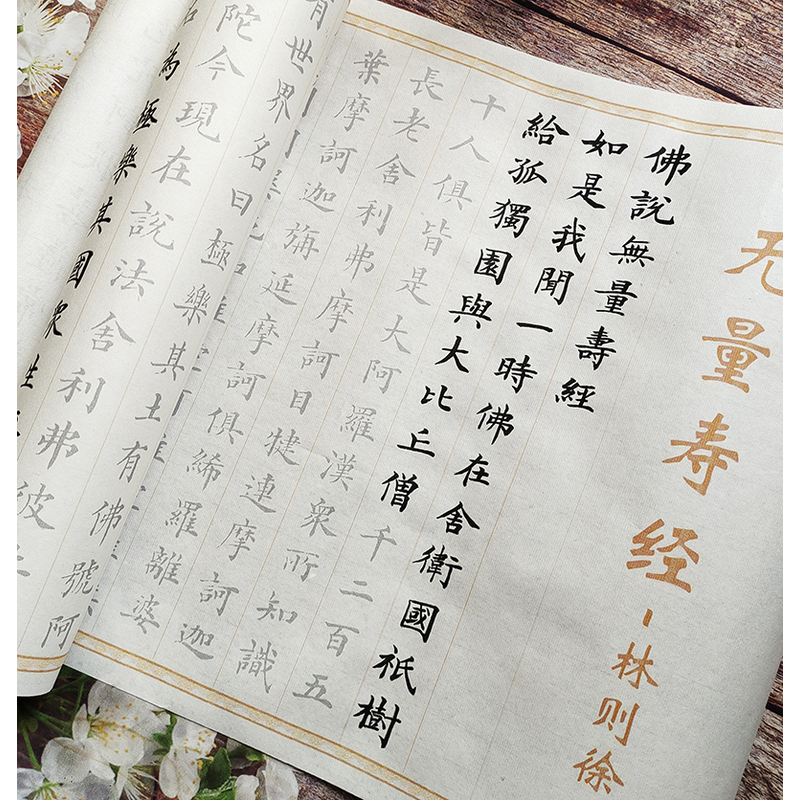 无量寿经-林则徐
佛說無量壽經
如是我聞一時佛在舍衛國祇樹
給孤獨園與大比丘僧千二百五
十人俱皆是大阿羅漢衆所知識
長老舍利弗摩訶目犍連摩訶迦
葉摩訶迦旃延摩訶俱絺羅離婆
有世界名曰極樂其土有佛號阿
陀今現在說法舍利弗彼
為極樂其國衆生